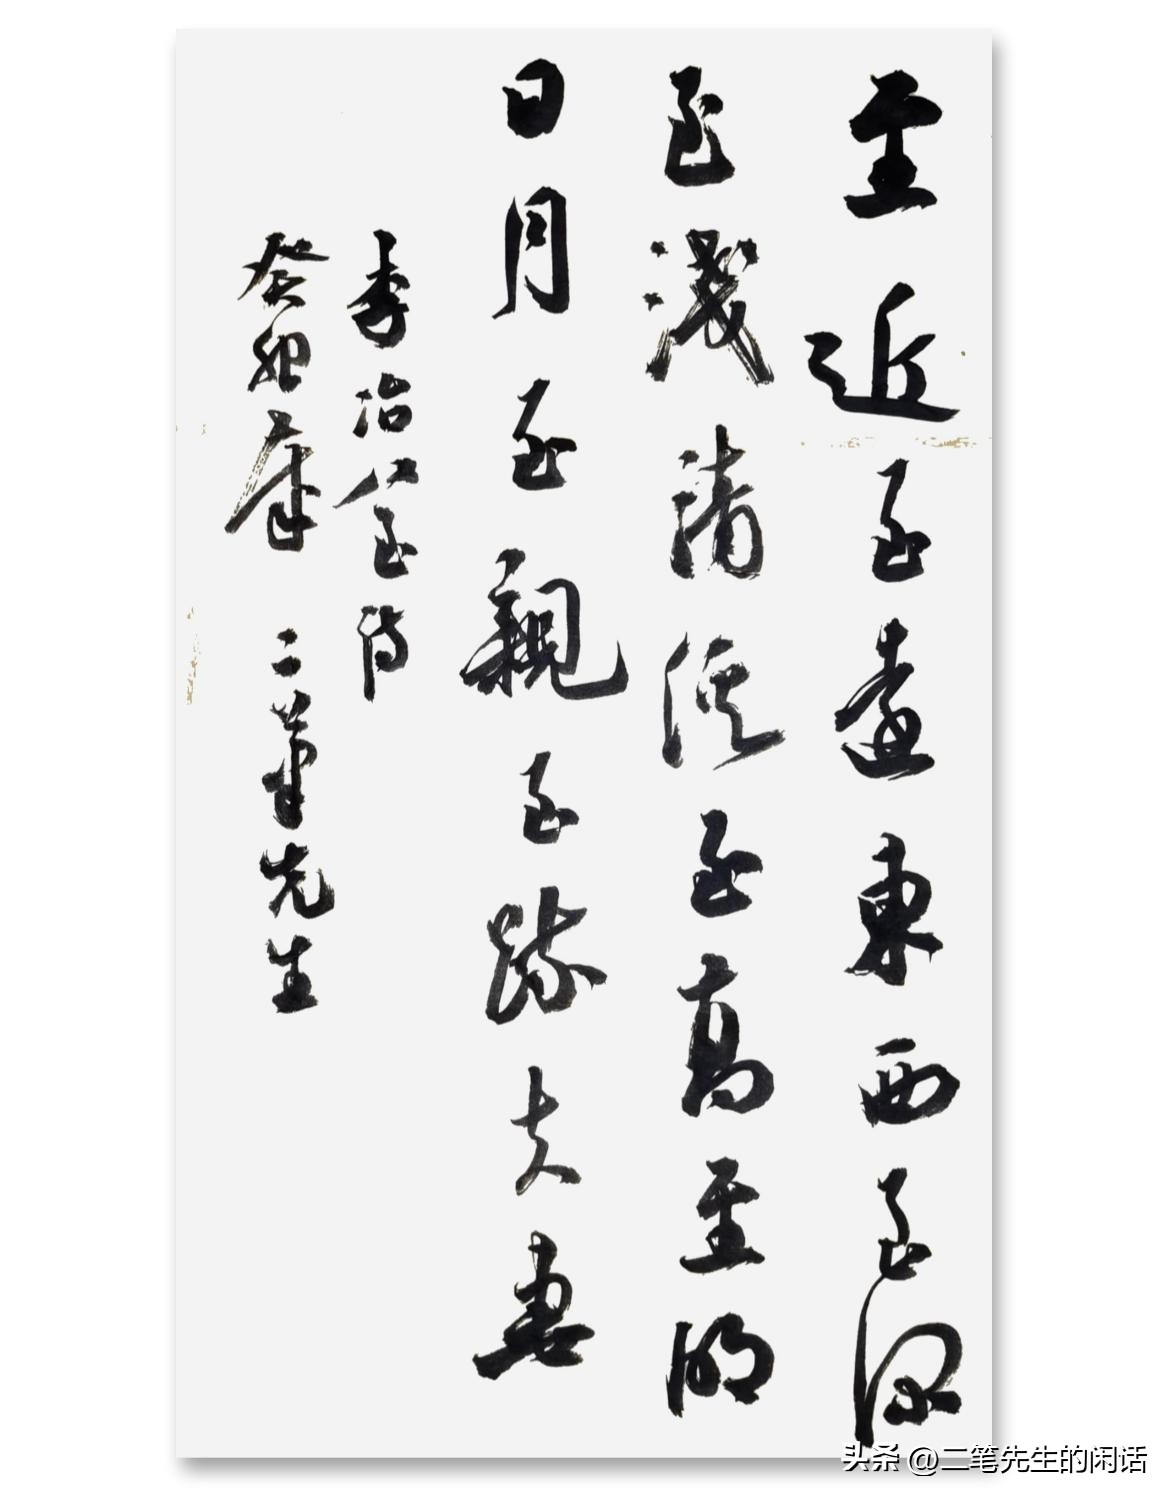 至近至遠東西至深
至淺清溪至高至明
日月至親至疎夫妻
李冶八至詩
癸卯年 二筆先生
头条 @二笔先生的闲话